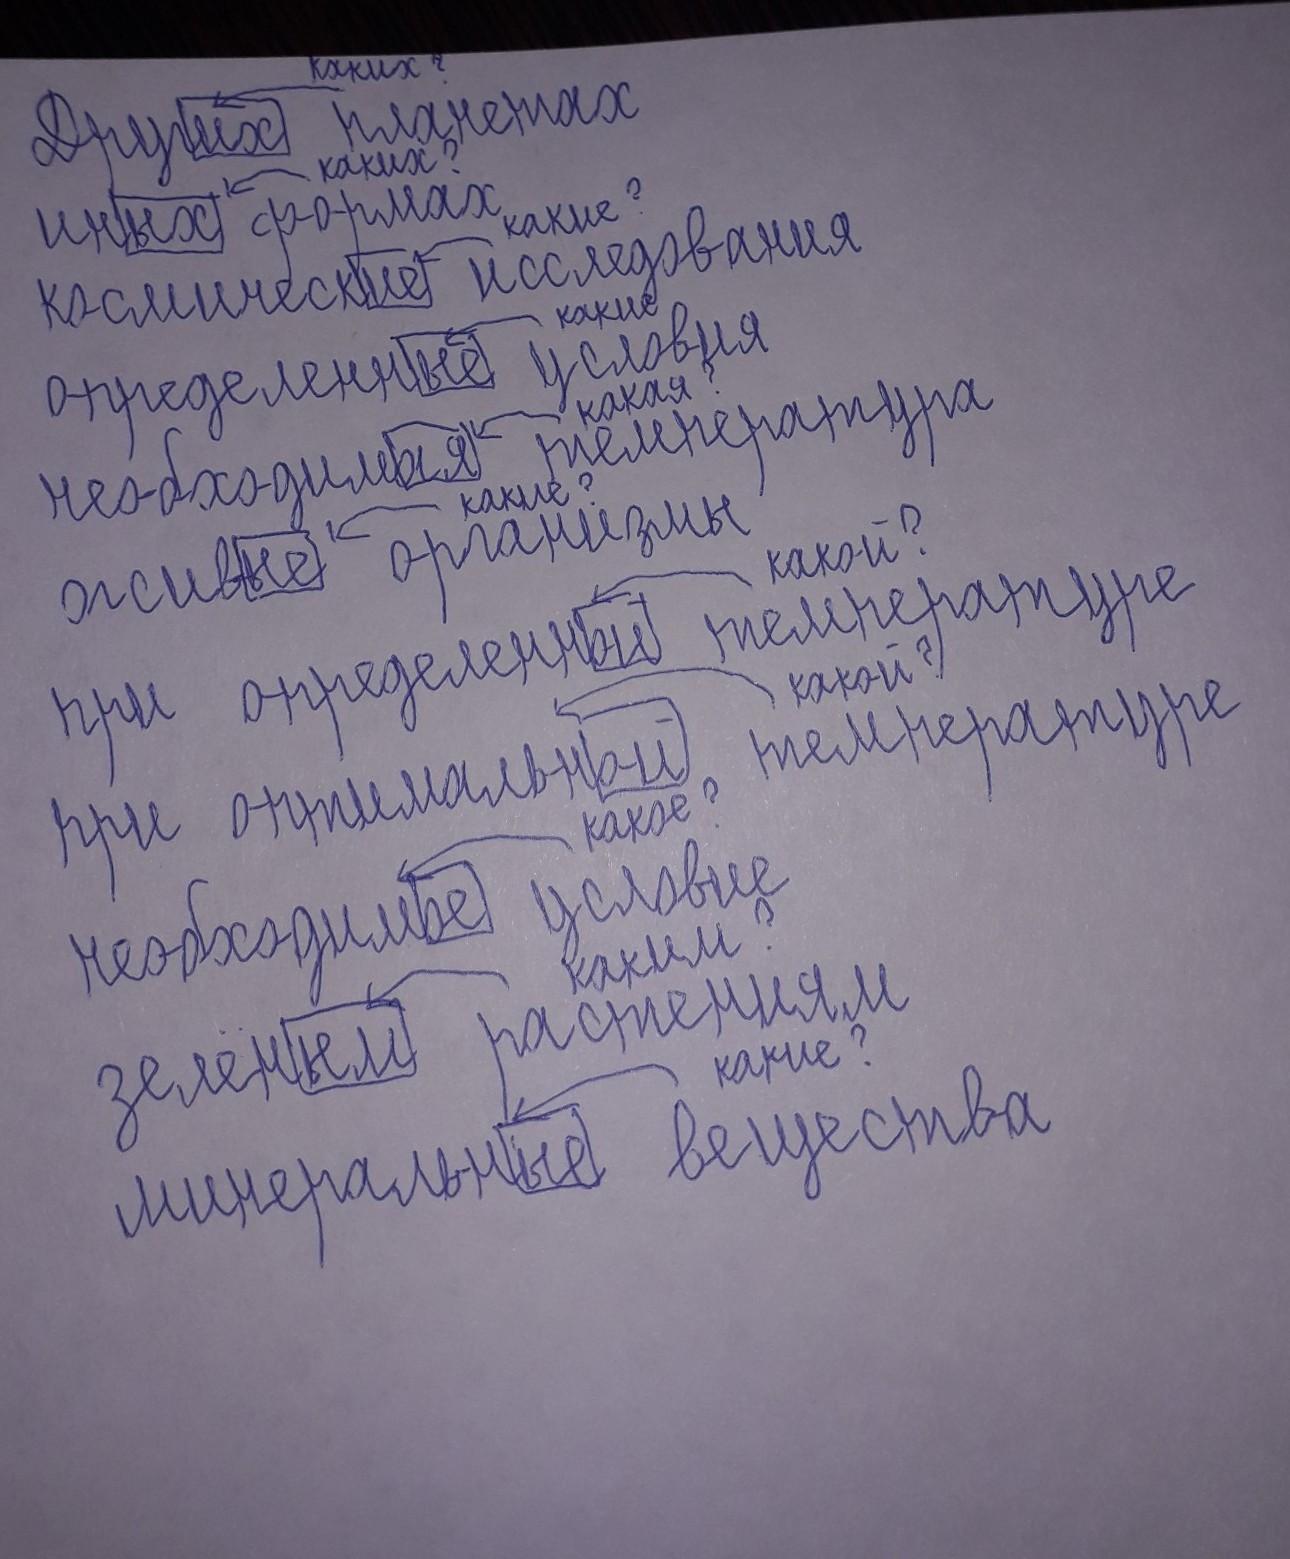 каких?
Других планетах
каких?
иных формах
какие?
космические исследования
какие
определенные условия
какая?
необходимая температура
какие?
живые организмы
какой?
при определенной температуре
какой?
при оптимальной температуре
какое?
необходимое условие
каким?
зелёным растениям
какие?
минеральные вещества